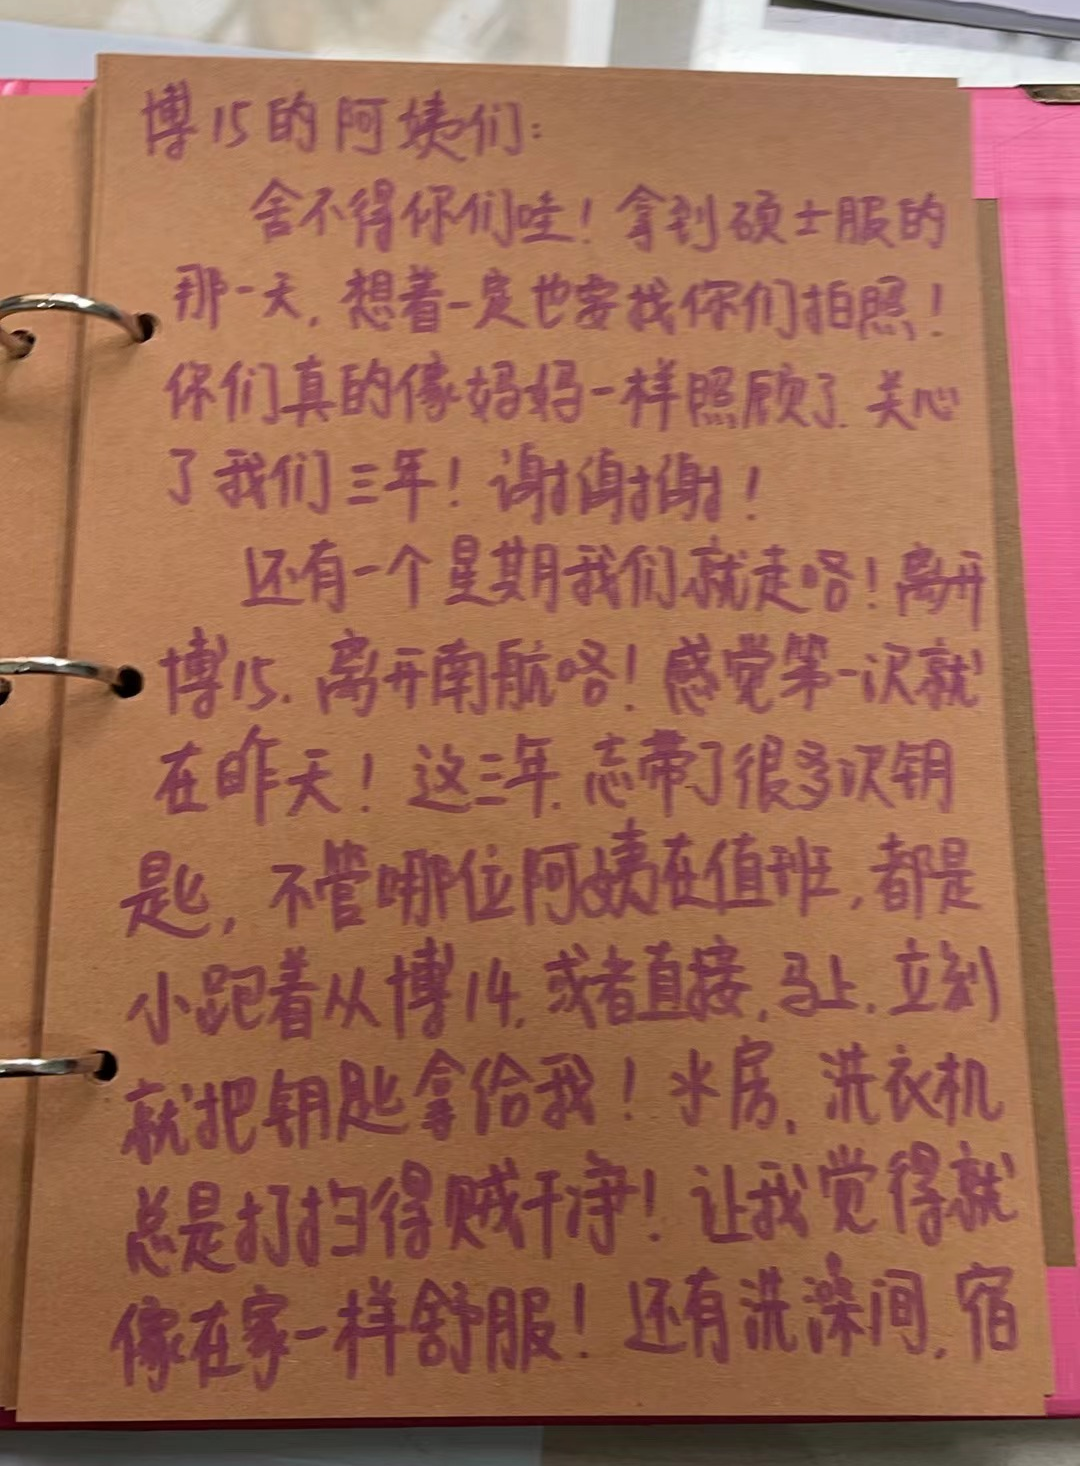 博15的阿姨们:
舍不得你们哇！拿到硕士服的
那一天,想着一定也要找你们拍照！
你们真的像妈妈一样照顾了.关心
了我们三年！谢谢谢！
还有一个星期我们就走咯！离开
博15.离开南航咯！感觉第一次就
在昨天！这三年.忘带了很多次钥
匙,不管哪位阿姨在值班,都是
小跑着从博14.或者直接.马上.立刻
就把钥匙拿给我！水房.洗衣机
总是打扫得贼干净！让我觉得就
像在家一样舒服！还有洗澡间.宿